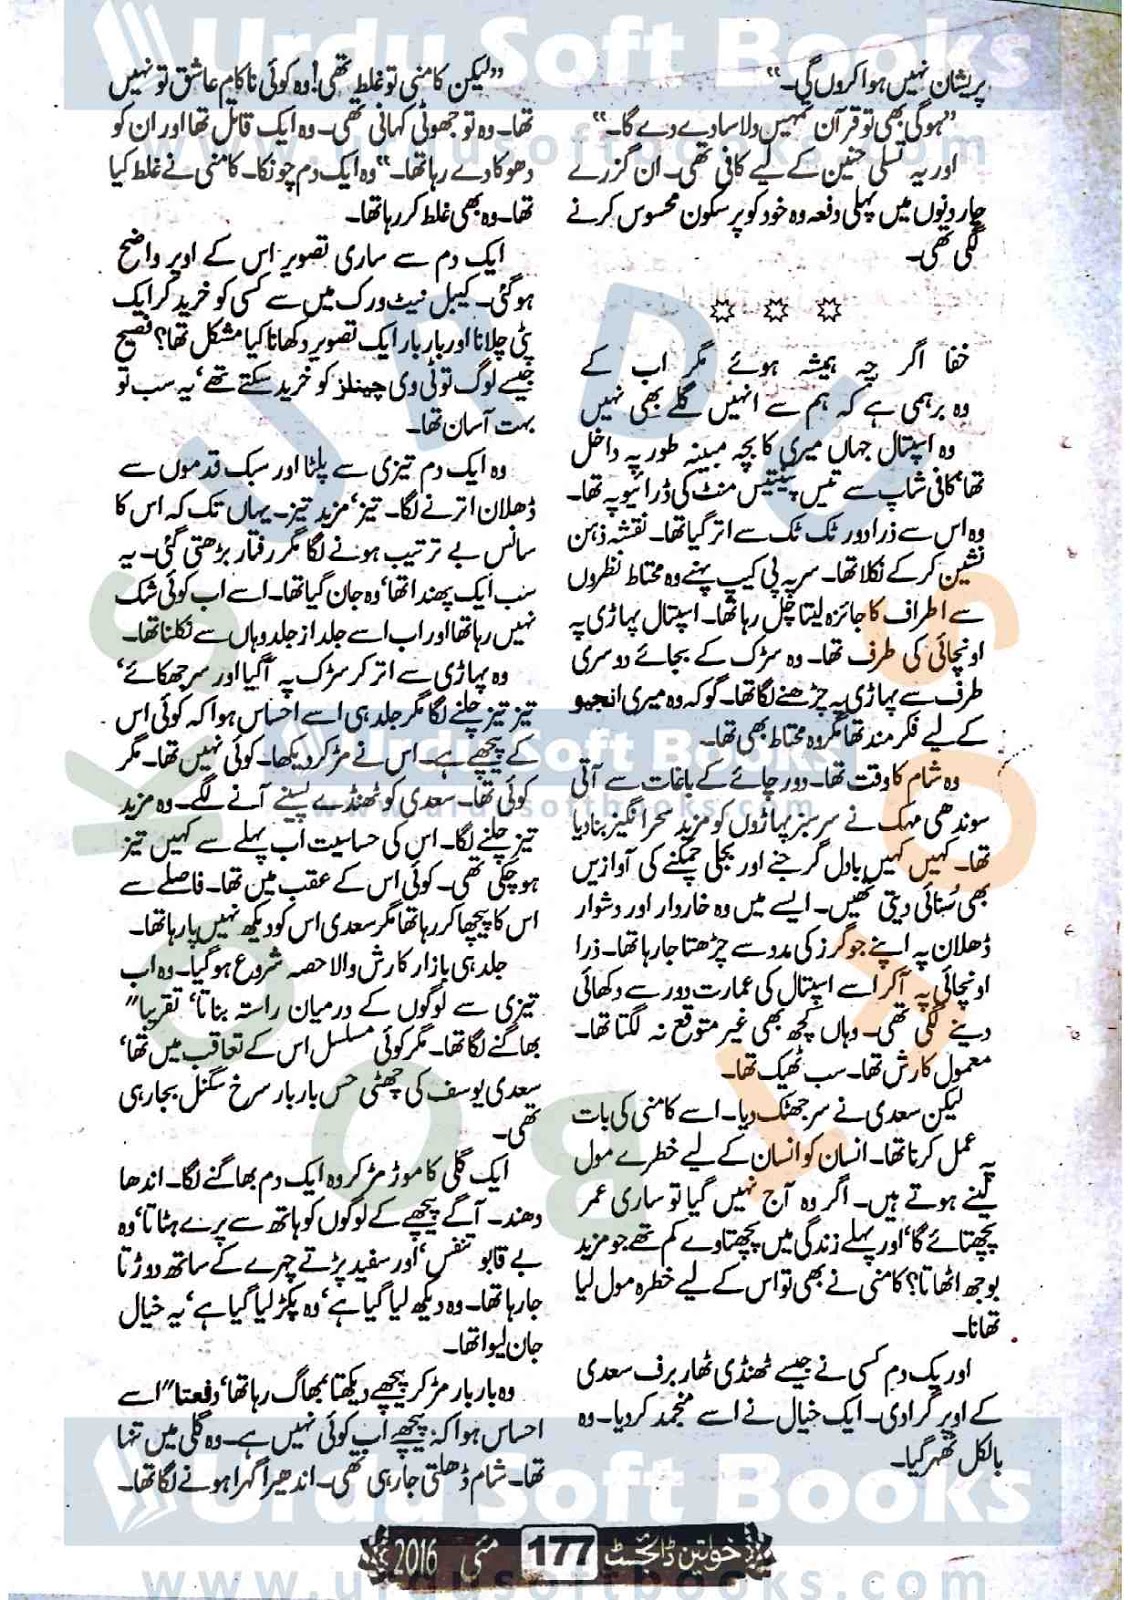 پریشان نہیں ہوا کروں گی۔“
”ہوگی بھی تو قرآن تمہیں دلاسا دے دے گا۔“
اور یہ تسلی حنین کے لیے کافی تھی۔ ان گزرے
چار دنوں میں پہلی دفعہ وہ خود کو پرسکون محسوس کرنے
لگی تھی۔
خفا اگر چہ ہمیشہ ہوئے مگر اب کے
وہ برہمی ہے کہ ہم سے انہیں گلے بھی نہیں
وہ اسپتال جہاں میری کا بچہ مبینہ طور پہ داخل
تھا‘ کافی شاپ سے تیس پینتیس منٹ کی ڈرائیو پہ تھا۔
وہ اس سے ذرا دور ٹک ٹک سے اتر گیا تھا۔ نقشہ ذہن
نشین کرکے نکلا تھا۔ سر پہ پی کیپ پہنے وہ محتاط نظروں
سے اطراف کا جائزہ لیتا چل رہا تھا۔ اسپتال پہاڑی پہ
اونچائی کی طرف تھا۔ وہ سڑک کے بجائے دوسری
طرف سے پہاڑی پہ چڑھنے لگا تھا۔ گو کہ وہ میری انجیو
کے لیے فکر مند تھا مگر وہ محتاط بھی تھا۔
وہ شام کا وقت تھا۔ دور چائے کے باغات سے آتی
سوندھی مہک نے سرسبز پہاڑوں کو مزید سحر انگیز بنا دیا
تھا۔ کہیں کہیں بادل گرجنے اور بجلی چمکنے کی آوازیں
بھی سُنائی دیتی تھیں۔ ایسے میں وہ خاردار اور دشوار
ڈھلان پہ اپنے جوگرز کی مدد سے چڑھتا جا رہا تھا۔ ذرا
اونچائی پہ آکر اسے اسپتال کی عمارت دور سے دکھائی
دینے لگی تھی۔ وہاں کچھ بھی غیر متوقع نہ لگتا تھا۔
معمول کا رش تھا۔ سب ٹھیک تھا۔
لیکن سعدی نے سر جھٹک دیا۔ اسے کامنی کی بات
پہ عمل کرنا تھا۔ انسان کو انسان کے لیے خطرے مول
لینے ہوتے ہیں۔ اگر وہ آج نہیں گیا تو ساری عمر
پچھتائے گا‘ اور پہلے زندگی میں پچھتاوے کم تھے جو مزید
بوجھ اٹھاتا؟ کامنی نے بھی تو اس کے لیے خطرہ مول لیا
تھا نا۔
اور یک دم کسی نے جیسے ٹھنڈی ٹھار برف سعدی
کے اوپر گرا دی۔ ایک خیال نے اسے منجمد کر دیا۔ وہ
بالکل ٹھہر گیا۔
”لیکن کامنی تو غلط تھی! وہ کوئی ناکام عاشق تو نہیں
تھا۔ وہ تو جھوٹی کہانی تھی۔ وہ ایک قاتل تھا اور ان کو
دھوکا دے رہا تھا۔“ وہ ایک دم چونکا۔ کامنی نے غلط کیا
تھا۔ وہ بھی غلط کر رہا تھا۔
ایک دم سے ساری تصویر اس کے اوپر واضح
ہوگئی۔ کیبل نیٹ ورک میں سے کسی کو خرید کر ایک
پٹی چلانا اور بار بار ایک تصویر دکھانا کیا مشکل تھا؟ فصیح
جیسے لوگ تو ٹی وی چینلز کو خرید سکتے تھے‘ یہ سب تو
بہت آسان تھا۔
وہ ایک دم تیزی سے پلٹا اور سبک قدموں سے
ڈھلان اترنے لگا۔ تیز‘ مزید تیز۔ یہاں تک کہ اس کا
سانس بے ترتیب ہونے لگا مگر رفتار بڑھتی گئی۔ یہ
سب ایک پھندا تھا‘ وہ جان گیا تھا۔ اسے اب کوئی شک
نہیں رہا تھا اور اب اسے جلد از جلد وہاں سے نکلنا تھا۔
وہ پہاڑی سے اتر کر سڑک پہ آگیا اور سر جھکائے‘
تیز تیز چلنے لگا مگر جلد ہی اسے احساس ہوا کہ کوئی اس
کے پیچھے ہے۔ اس نے مڑ کر دیکھا۔ کوئی نہیں تھا۔ مگر
کوئی تھا۔ سعدی کو ٹھنڈے پسینے آنے لگے۔ وہ مزید
تیز چلنے لگا۔ اس کی حساسیت اب پہلے سے کہیں تیز
ہو چکی تھی۔ کوئی اس کے عقب میں تھا۔ فاصلے سے
اس کا پیچھا کر رہا تھا مگر سعدی اس کو دیکھ نہیں پا رہا تھا۔
جلد ہی بازار کا رش والا حصہ شروع ہوگیا۔ وہ اب
تیزی سے لوگوں کے درمیان راستہ بناتا‘ تقریباً
بھاگنے لگا تھا۔ مگر کوئی مسلسل اس کے تعاقب میں تھا‘
سعدی یوسف کی چھٹی حس بار بار سرخ سگنل بجا رہی
تھی۔
ایک گلی کا موڑ مڑ کر وہ ایک دم بھاگنے لگا۔ اندھا
دھند۔ آگے پیچھے کے لوگوں کو ہاتھ سے پرے ہٹاتا‘ وہ
بے قابو تنفس‘ اور سفید پڑتے چہرے کے ساتھ دوڑتا
جا رہا تھا۔ وہ دیکھ لیا گیا ہے‘ وہ پکڑ لیا گیا ہے‘ یہ خیال
جان لیوا تھا۔
وہ بار بار مڑ کر پیچھے دیکھتا بھاگ رہا تھا‘ دفعتاً اسے
احساس ہوا کہ پیچھے اب کوئی نہیں ہے۔ وہ گلی میں تنہا
تھا۔ شام ڈھلتی جا رہی تھی۔ اندھیرا گہرا ہونے لگا تھا۔
خواتین ڈائجسٹ 177 مئی 2016
Urdu Soft Books
www.urdusoftbooks.com
URDU SOFT BOOKS
Urdu Soft Books
www.urdusoftbooks.com
Urdu Soft Books
www.urdusoftbooks.com